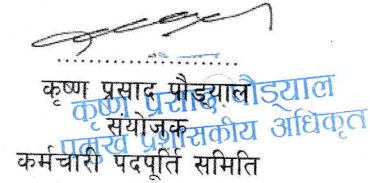 कृष्ण प्रसाद पौड्याल
कृष्ण प्रसाद पौड्याल
संयोजक
प्रमुख प्रशासकीय अधिकृत
कर्मचारी पदपूर्ति समिति